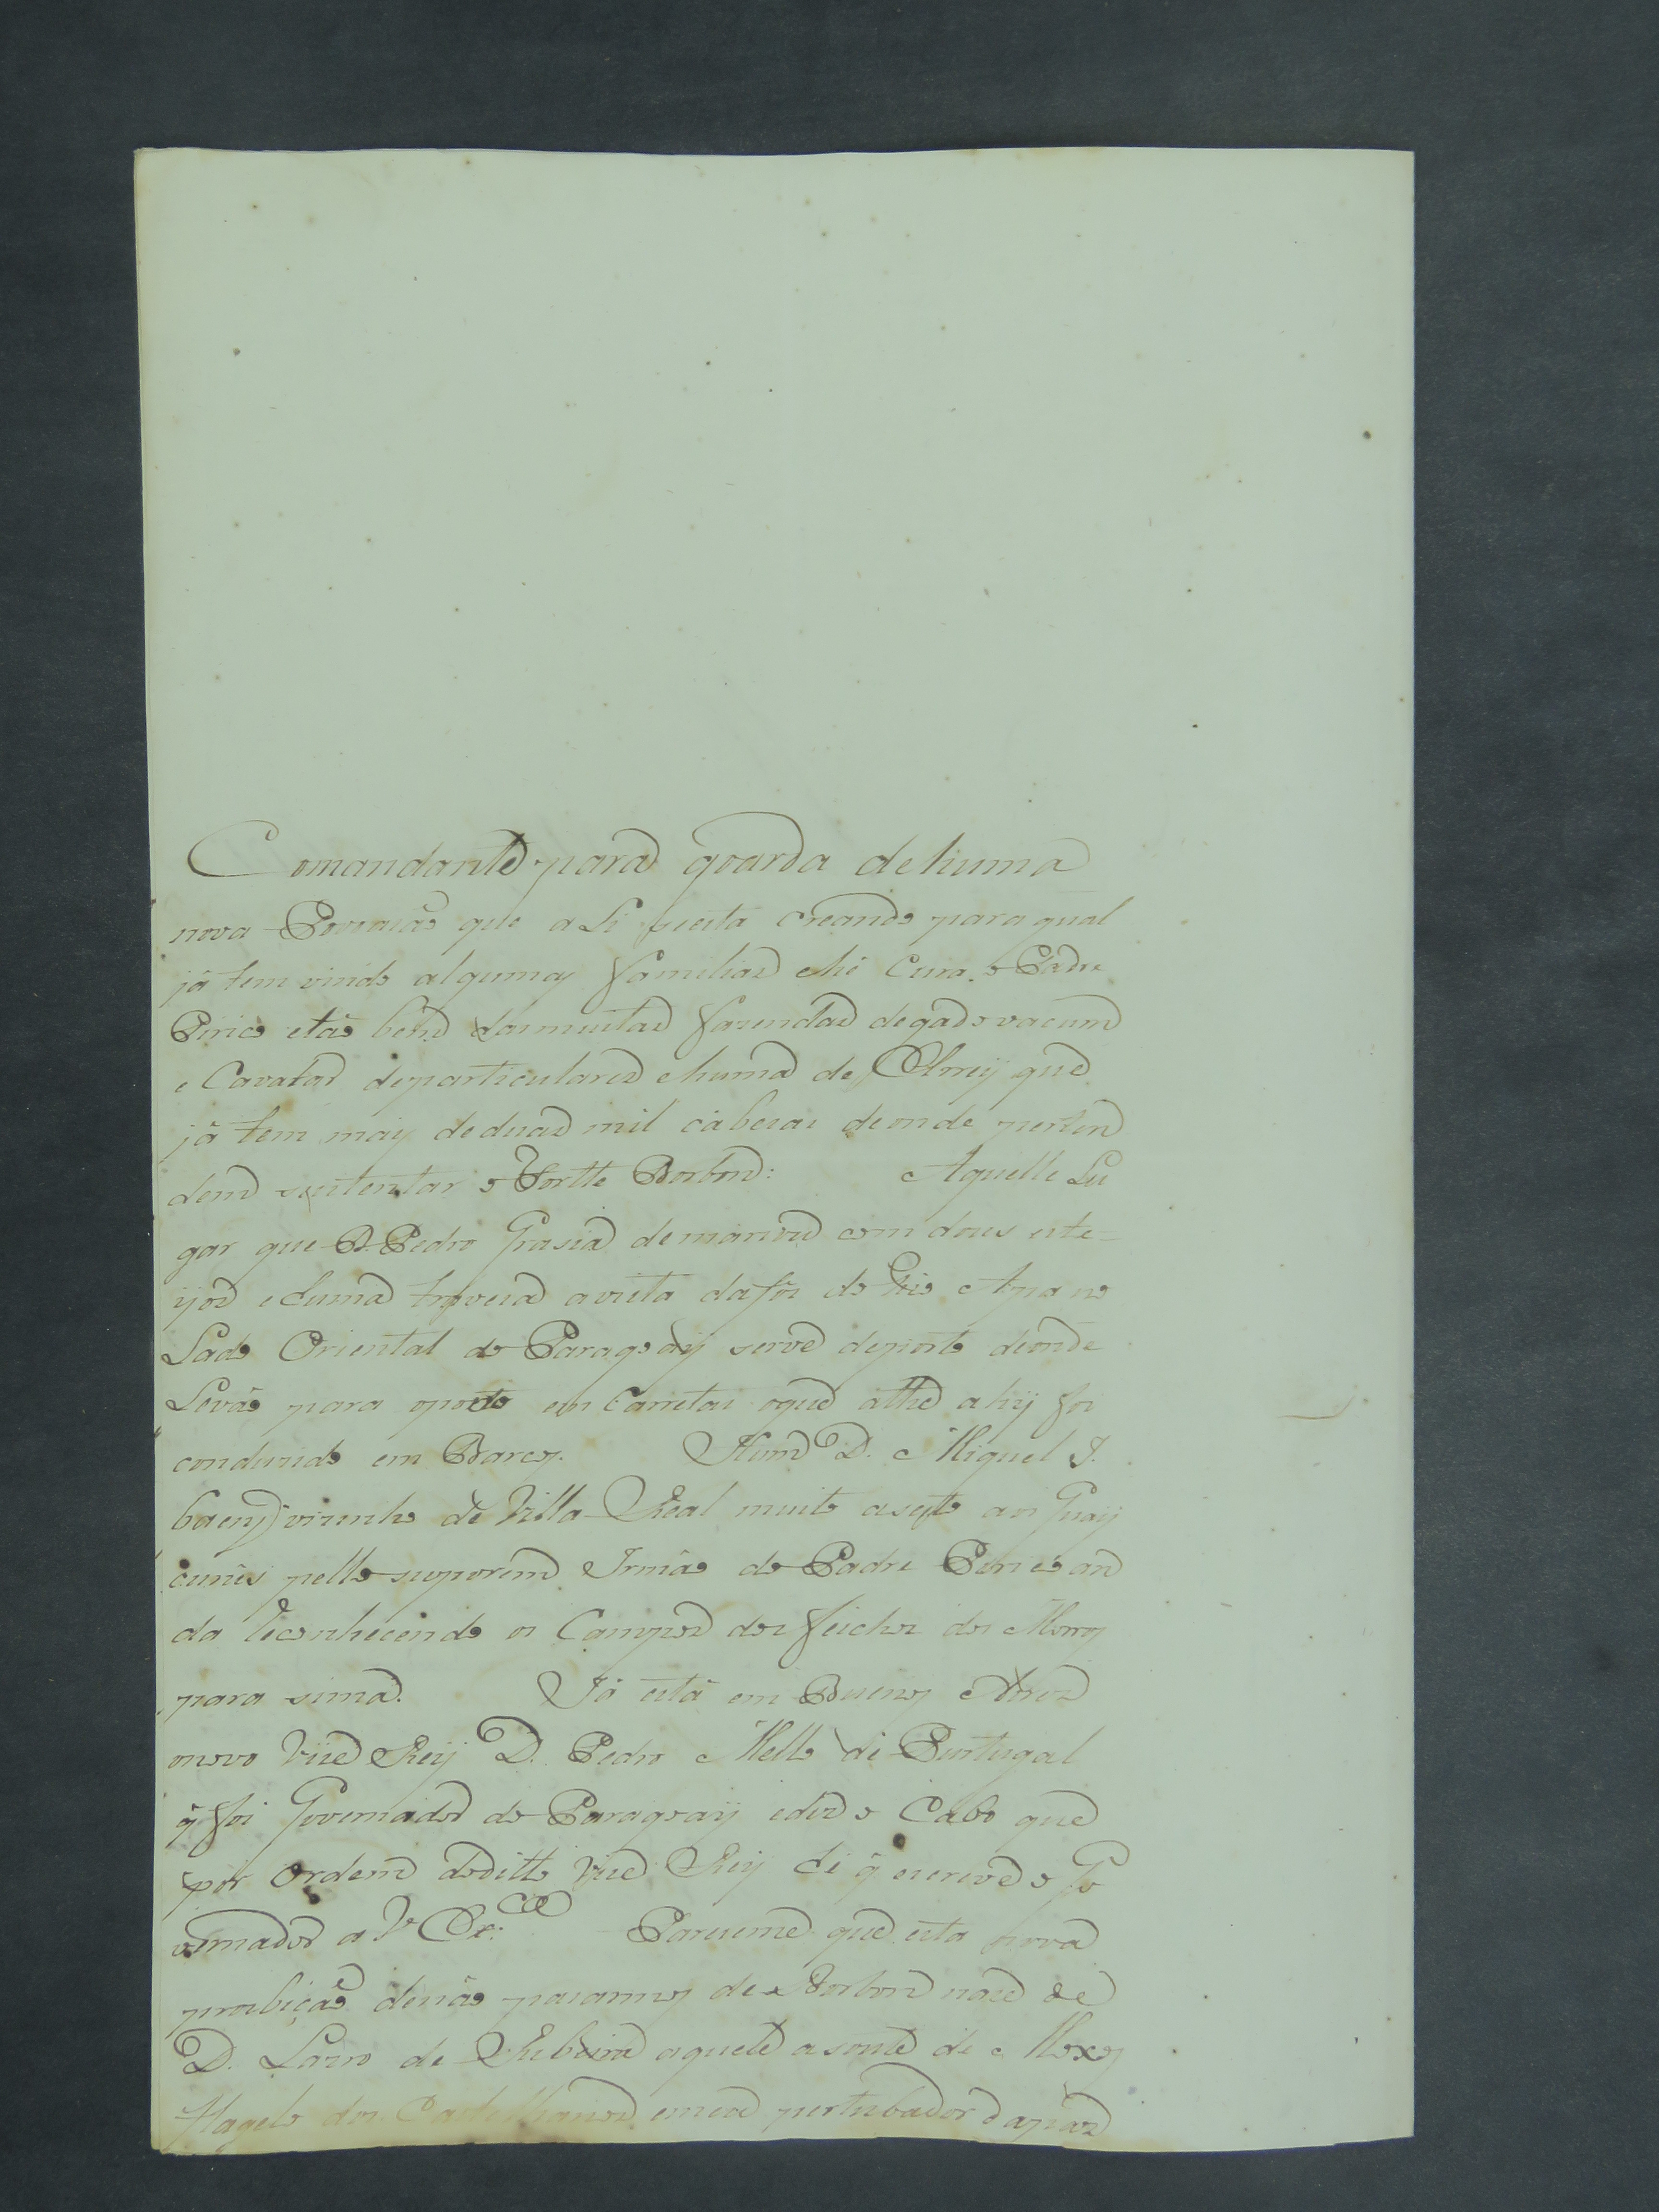 Comandante para goarda dehuma
nova Povoaçaõ que aLi seesta creando para qual
já tem vindo algumas familias ehé Cura o Padre
etaõ bem fazendas degado vacum
e Cavalar departiculares ehuma de Elrey que
já tem mais deduas mil cabesas deonde perten
dem sustentar o Fortte Borbon: Aquelle Lu
gar que D. Pedro Grasia demarcou com dous este-
ijos ehuma travesa avista dafós do Rio Apa no
Lado Oriental do Paragoaÿ serve deporto deonde
Levaõ para oporto em Carretas oque athé ahÿ foi
conduzido em Barcos. Hum D. Miguel I.
baens vizinho de Villa Real muito aseito aos Guaÿ
curûs pello suporem Irmaõ do Padre an
da reconhecendo os Campos dos feichos dos Morros
para sima. Já está em Buenos Aires
onovo Vise Reÿ D. Pedro Mello de Purtugal
q̃ foi Governador do Paragoaÿ ediz o Cabo que
por ordem doditto Vise Reÿ hé q̃ escreve o Go
vernador a V Ex.ᶜᵃ Pareseme que esta nova
proibiçaõ denaõ pasarmos de Borbon nase de
D. Lazro de Ribeira aquele asoute de Moxos
flagelo dos Castelhanos emca pertubador dapas